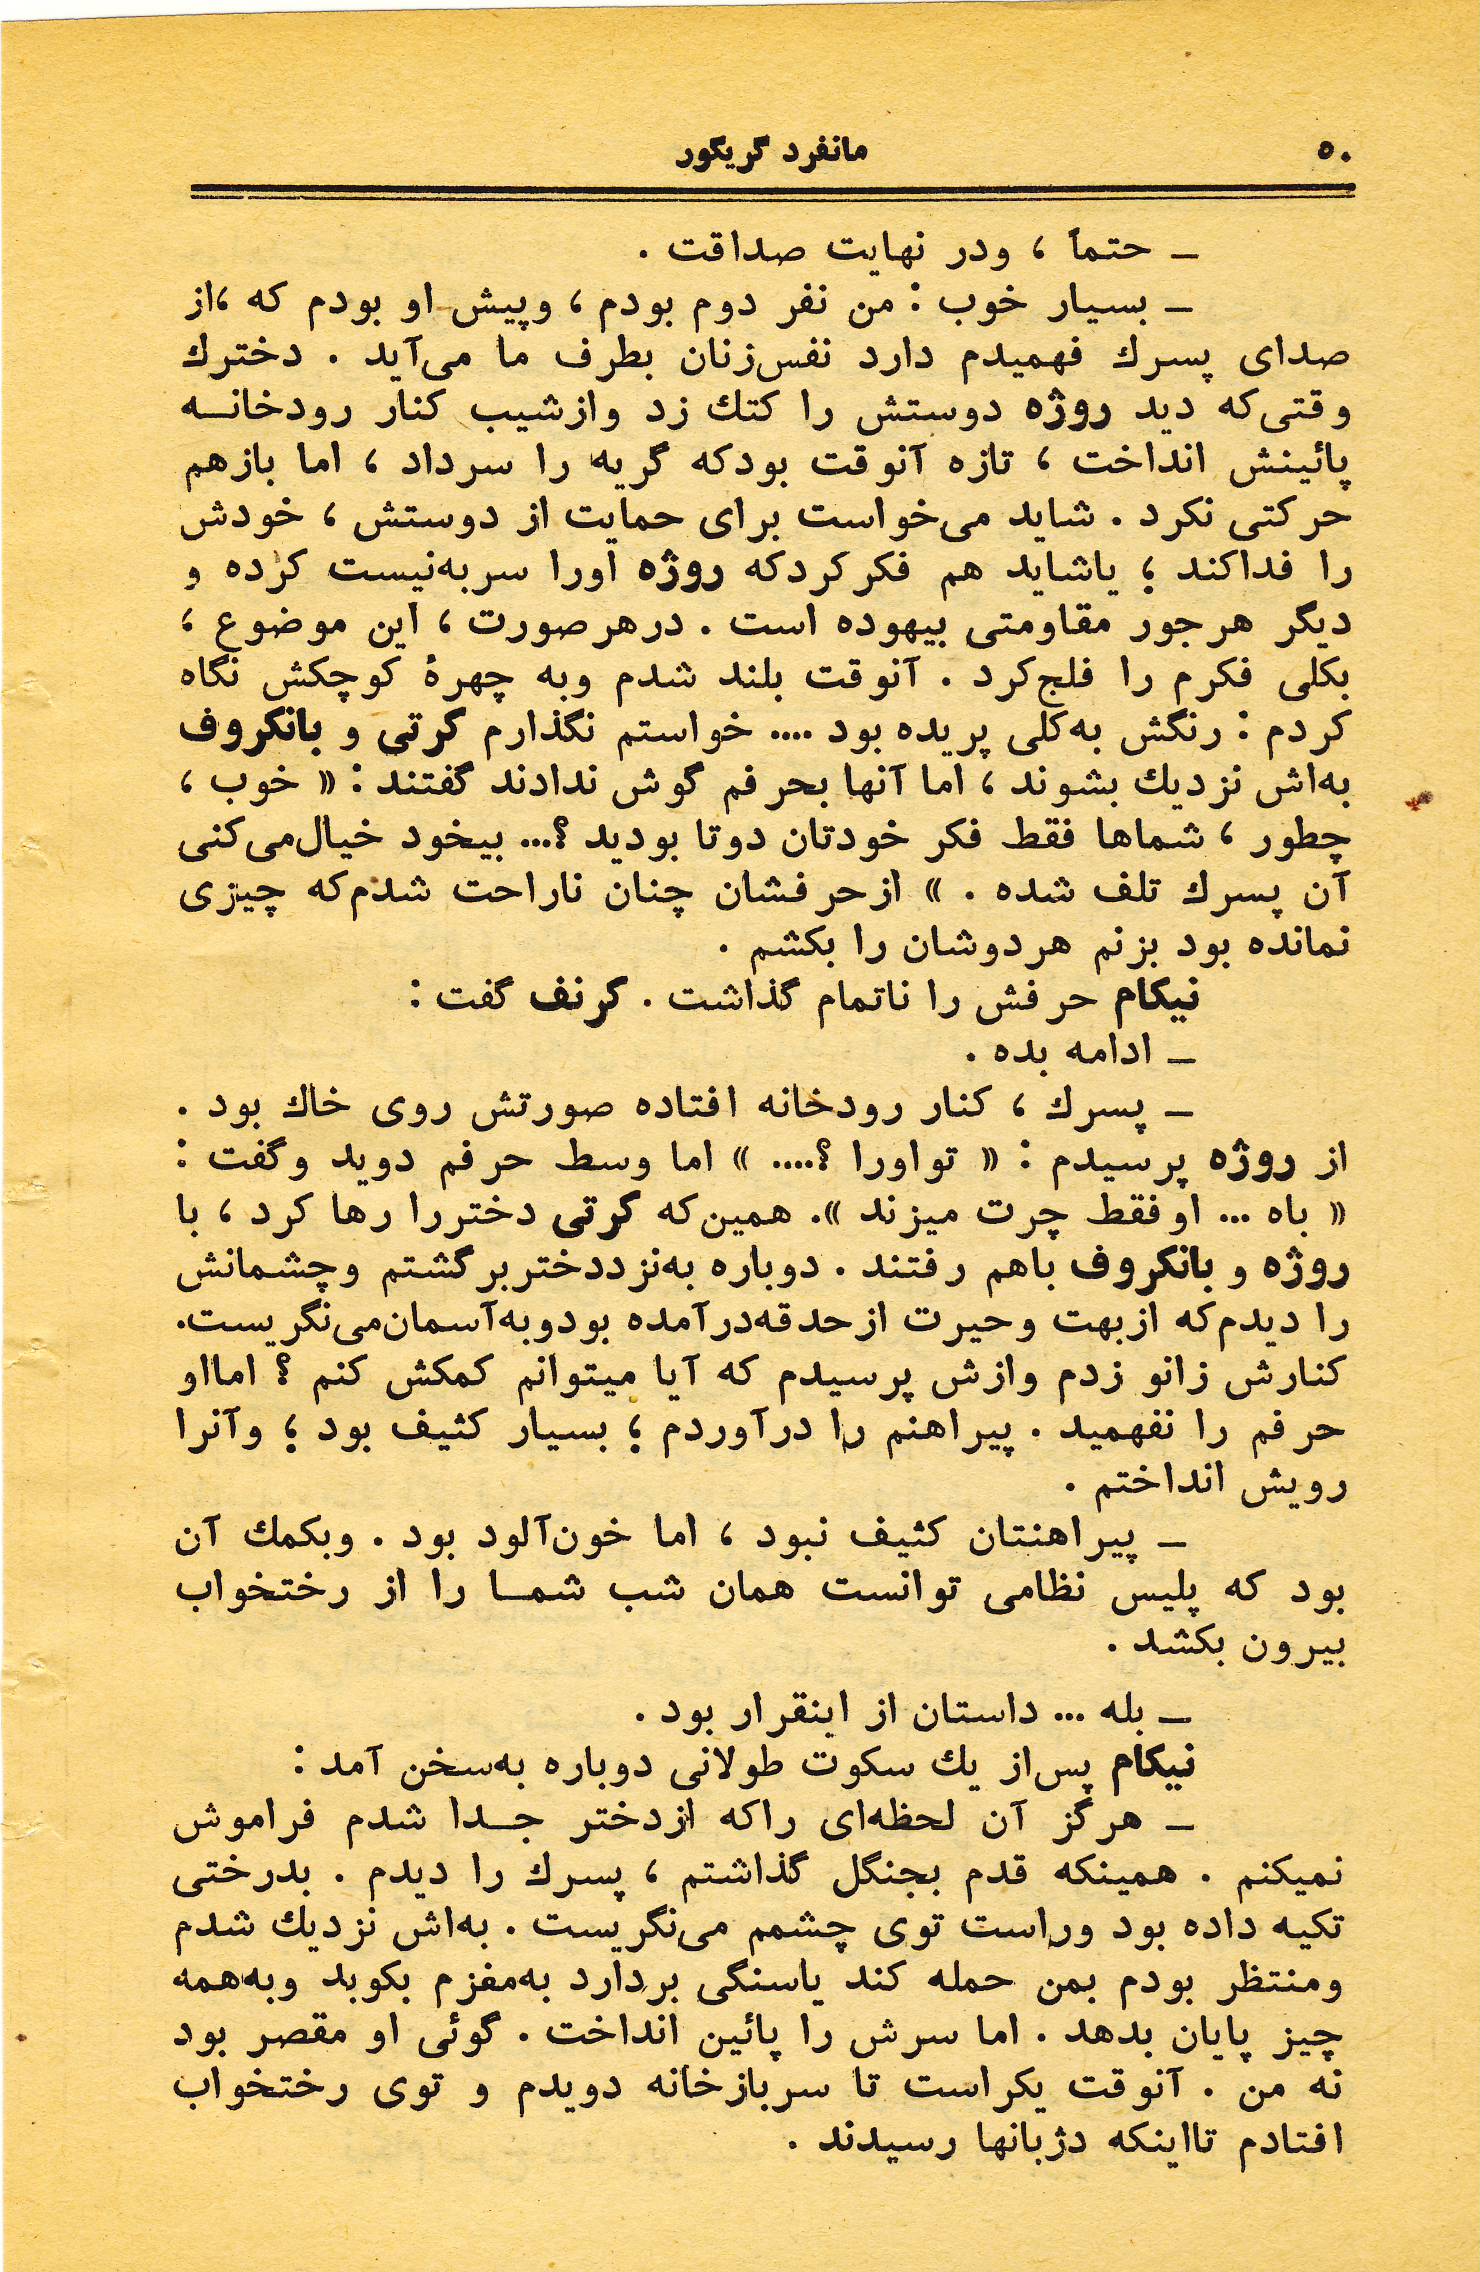 ۵۰
مانفرد گریگور
ـ حتماً ، ودر نهایت صداقت .
ـ بسیار خوب : من نفر دوم بودم ، وپیش او بودم که ،از
صدای پسرك فهمیدم دارد نفس‌زنان بطرف ما می‌آید . دخترك
وقتی‌که دید روژه دوستش را کتك زد وازشیب کنار رودخانــه
پائینش انداخت ، تازه آنوقت بودکه گریه را سرداد ، اما بازهم
حرکتی نکرد . شاید می‌خواست برای حمایت از دوستش ، خودش
را فداکند ؛ یاشاید هم فکرکردکه روژه اورا سربه‌نیست کرده و
دیگر هرجور مقاومتی بیهوده است . درهرصورت ، این موضوع ،
بکلی فکرم را فلج‌کرد . آنوقت بلند شدم وبه چهرهٔ کوچکش نگاه
کردم : رنگش به‌کلی پریده بود .... خواستم نگذارم گرتی و بانکروف
به‌اش نزدیك بشوند ، اما آنها بحرفم گوش ندادند گفتند : « خوب ،
چطور ، شماها فقط فکر خودتان دوتا بودید ؟... بیخود خیال‌می‌کنی
آن پسرك تلف شده . » ازحرفشان چنان ناراحت شدم‌که چیزی
نمانده بود بزنم هردوشان را بکشم .
نیکام حرفش را ناتمام گذاشت . کرنف گفت :
ـ ادامه بده .
ـ پسرك ، کنار رودخانه افتاده صورتش روی خاك بود .
از روژه پرسیدم : « تواورا ؟.... » اما وسط حرفم دوید وگفت :
« باه ... اوفقط چرت میزند ». همین‌که گرتی دختررا رها کرد ، با
روژه و بانکروف باهم رفتند . دوباره به‌نزددختربرگشتم وچشمانش
را دیدم‌که ازبهت وحیرت ازحدقه‌درآمده بودوبه‌آسمان‌می‌نگریست.
کنارش زانو زدم وازش پرسیدم که آیا میتوانم کمکش کنم ؟ امااو
حرفم را نفهمید . پیراهنم را درآوردم ؛ بسیار کثیف بود ؛ وآنرا
رویش انداختم .
ـ پیراهنتان کثیف نبود ، اما خون‌آلود بود . وبکمك آن
بود که پلیس نظامی توانست همان شب شمــا را از رختخواب
بیرون بکشد .
ـ بله ... داستان از اینقرار بود .
نیکام پس‌از یك سکوت طولانی دوباره به‌سخن آمد :
ـ هرگز آن لحظه‌ای راکه ازدختر جــدا شدم فراموش
نمیکنم . همینکه قدم بجنگل گذاشتم ، پسرك را دیدم . بدرختی
تکیه داده بود وراست توی چشمم می‌نگریست . به‌اش نزدیك شدم
ومنتظر بودم بمن حمله کند یاسنگی بردارد به‌مغزم بکوبد وبه‌همه
چیز پایان بدهد . اما سرش را پائین انداخت . گوئی او مقصر بود
نه من . آنوقت یکراست تا سربازخانه دویدم و توی رختخواب
افتادم تااینکه دژبانها رسیدند .